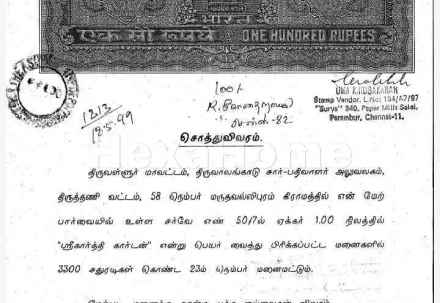 भारत
एक सौ रूपये ONE HUNDRED RUPEES
100/-
UMA KIRUBAKARAN
Stamp Vendor, L.No: 194/A2/97
"Surya" 340, Paper Mills Salai,
Perambur, Chennai-11.
1213
18.5.99
சென்னை-82
சொத்துவிவரம்.
திருவள்ளூர் மாவட்டம், திருவாலங்காடு சார்-பதிவாளர் அலுவலகம்,
திருத்தணி வட்டம், 58 நெம்பர் மருதவல்லிபுரம் கிராமத்தில் என் மேற்
பார்வையில் உள்ள சர்வே எண் 50/7ல் ஏக்கர் 1.00 நிலத்தில்
"ஸ்ரீகார்த்தி கார்டன்" என்று பெயர் வைத்து பிரிக்கப்பட்ட மனைகளில்
3300 சதுரடிகள் கொண்ட 23ம் நெம்பர் மனைமட்டும்.